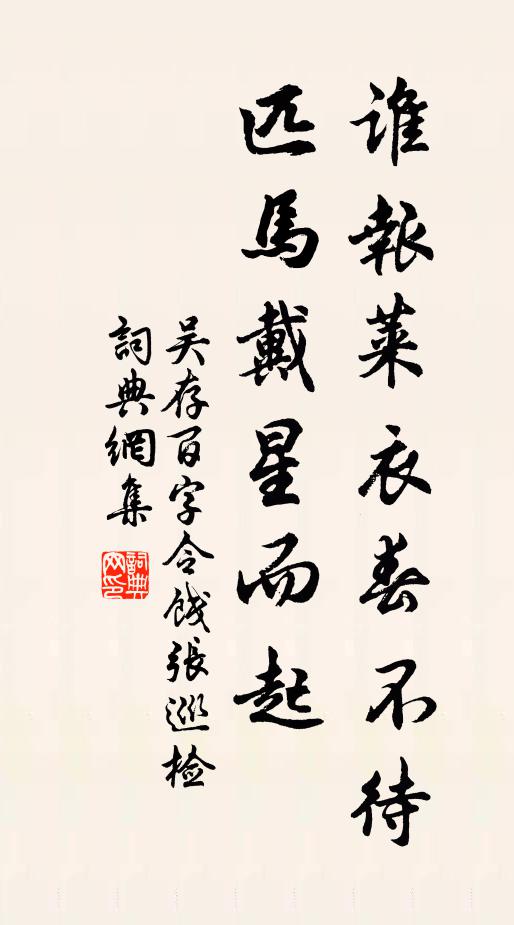 谁報莱衣春不待
匹馬戴星而起
吴存百字令餞張巡檢
詞典網集
詞典網印